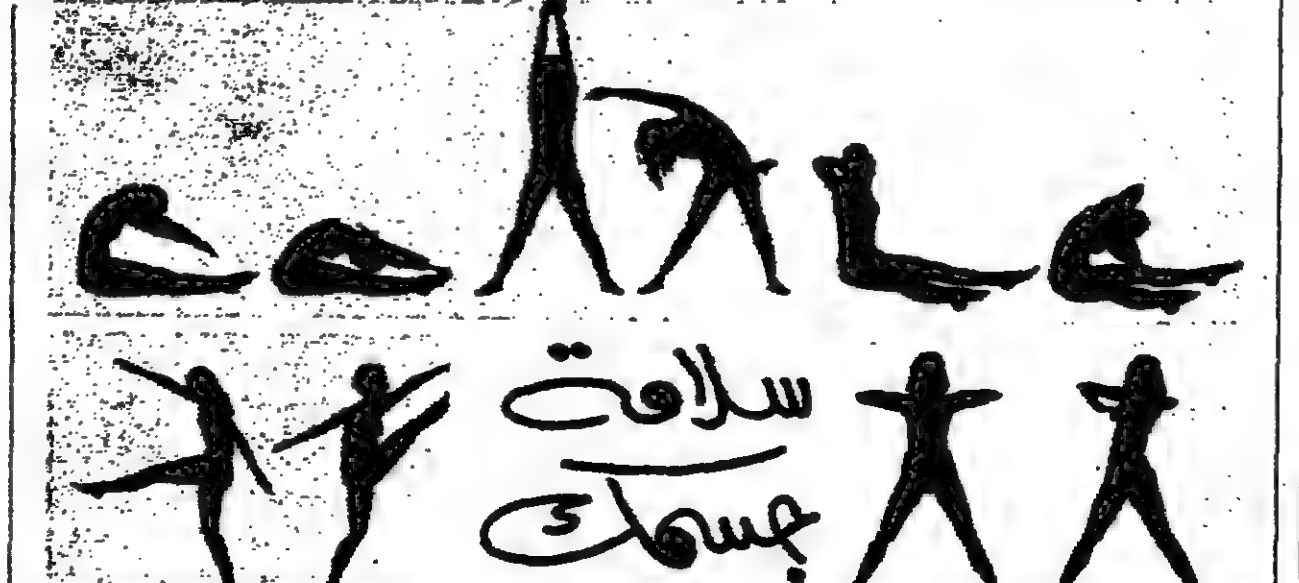 سلامة
جسمك